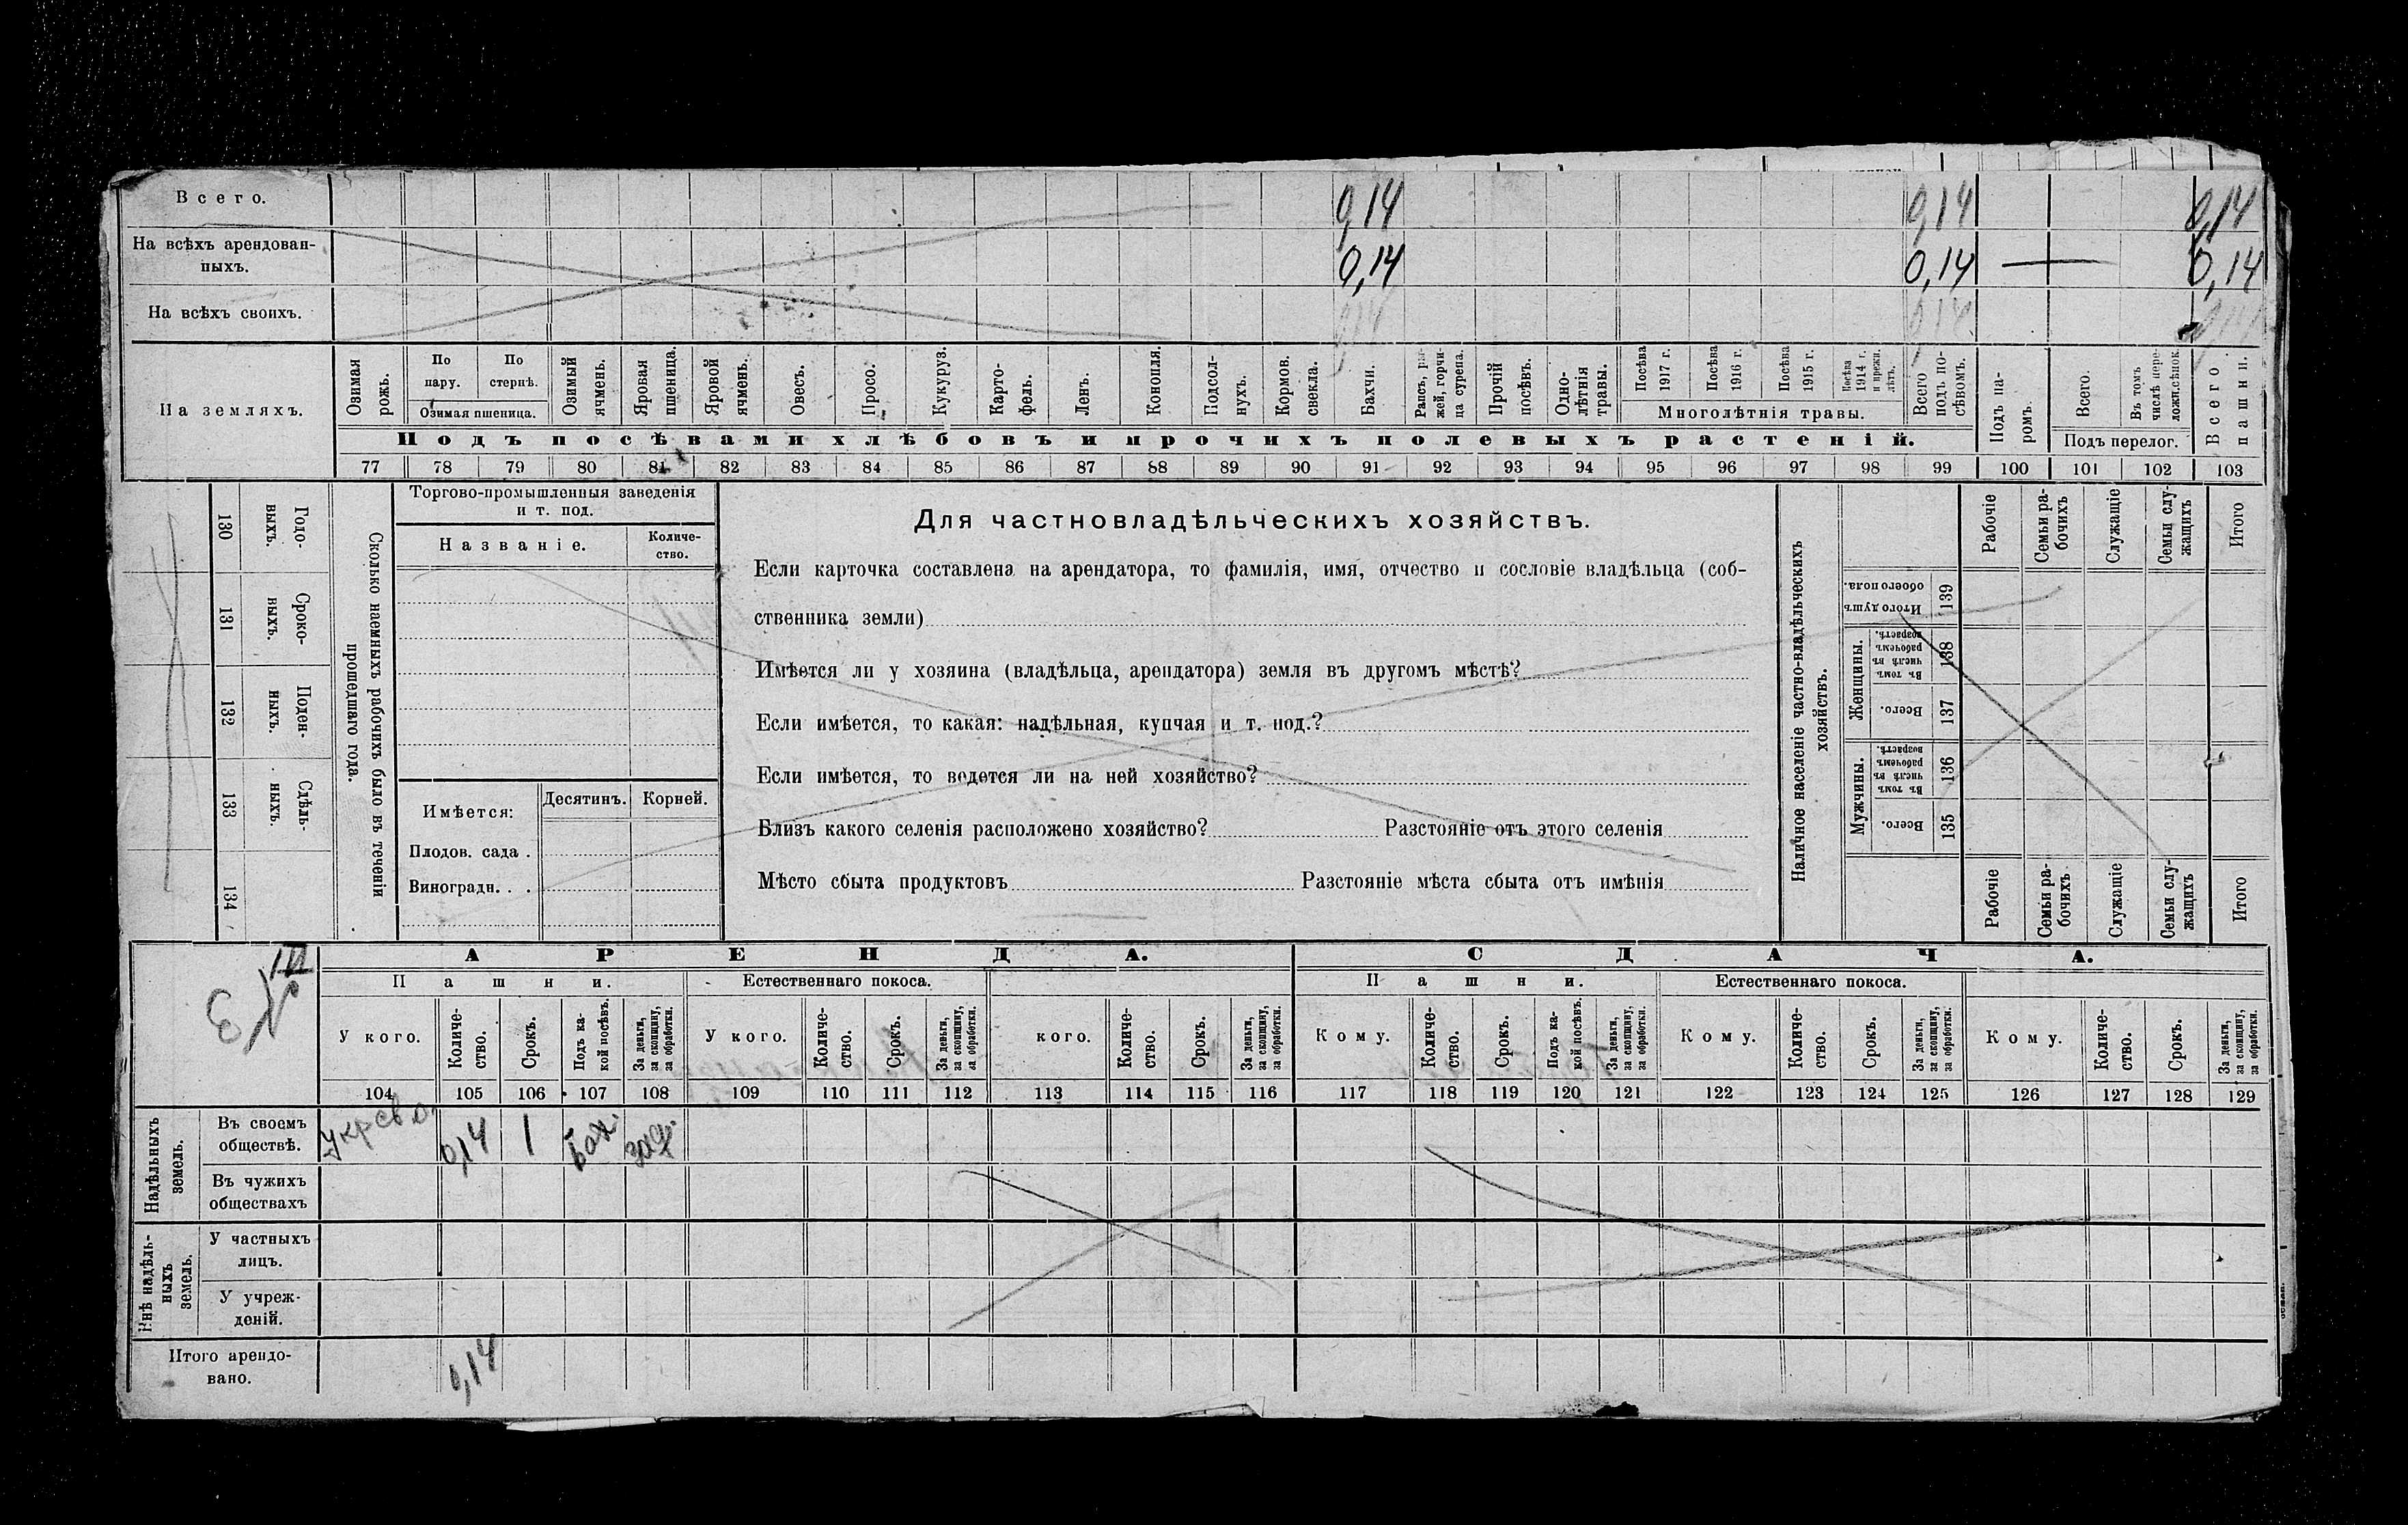 Всего. 0,14 0,14 0,14
На всѣхъ арендован-
ныхъ. 0,14 0,14 — 0,14
На всѣхъ своихъ.
На земляхъ.
Озимая рожь.
По пару.
По стернѣ.
Озимая пшеница.
Озимый ячмень.
Яровая пшеница.
Яровой ячмень.
Овесъ.
Просо.
Кукуруз.
Карто-
фель.
Ленъ.
Конопля.
Подсол-
нухъ.
Кормов. свекла.
Бахчи.
Рапсъ, ры-
жей, горчи-
ца сурепа.
Прочій посѣвъ.
Одно-
лѣтнія травы.
Посѣва 1917 г.
Посѣва 1916 г.
Посѣва 1915 г.
Посѣва 1914 г. и прежн. лѣтъ.
Многолѣтнія травы.
Всего подъ по-
сѣвомъ.
Подъ па-
ромъ.
Всего.
Въ томъ числѣ пере-
ложн.сѣнок.
Подъ перелог.
Всего пашни.
Подъ посѣвами хлѣбовъ и прочихъ полевыхъ растеній.
77 78 79 80 81 82 83 84 85 86 87 88 89 90 91 92 93 94 95 96 97 98 99 100 101 102 103
130 Годо-
выхъ.
131 Сроко-
выхъ.
132 Поден-
ныхъ.
133 Сдѣль-
ныхъ.
134
Сколько наемныхъ рабочихъ было въ теченіи
прошедшаго года.
Торгово-промышленныя заведенія
и т. под.
Названіе.
Количе-
ство.
Имѣется:
Десятинъ.
Корней.
Плодов. сада .
Виноградн. . .
Для частновладѣльческихъ хозяйствъ.
Если карточка составлена на арендатора, то фамилія, имя, отчество и сословіе владѣльца (соб-
ственника земли)
Имѣется ли у хозяина (владѣльца, арендатора) земля въ другомъ мѣстѣ?
Если имѣется, то какая: надѣльная, купчая и т. под.?
Если имѣется, то ведется ли на ней хозяйство?
Близъ какого селенія расположено хозяйство? Разстояніе отъ этого селенія
Мѣсто сбыта продуктовъ Разстояніе мѣста сбыта отъ имѣнія
Наличное населеніе частно-владѣльческихъ
хозяйствъ.
Рабочіе
Семьи ра-
бочихъ
Служащіе
Семьи слу-
жащихъ
Итого
Итого душъ обоего пола. 139
Женщины.
Въ томъ числѣ въ рабочемъ возрастѣ. 138
Всего. 137
Мужчины.
Въ томъ числѣ въ рабочемъ возрастѣ. 136
Всего. 135
Рабочіе
Семьи ра-
бочихъ
Служащіе
Семьи слу-
жащихъ
Итого
АРЕНДА. СДАЧА.
Пашни. Естественнаго покоса. Пашни. Естественнаго покоса.
У кого.
Количе-
ство.
Срокъ.
Подъ ка-
кой посѣвъ.
За деньги, за скопщину, за обработки.
У кого.
Количе-
ство.
Срокъ.
За деньги, за скопщину, за обработки.
кого.
Количе-
ство.
Срокъ.
За деньги, за скопщину, за обработки.
Кому.
Количе-
ство.
Срокъ.
Подъ ка-
кой посѣвъ.
За деньги, за скопщину, за обработки.
Кому.
Количе-
ство.
Срокъ.
За деньги, за скопщину, за обработки.
Кому.
Количе-
ство.
Срокъ.
За деньги, за скопщину, за обработки.
104 105 106 107 108 109 110 111 112 113 114 115 116 117 118 119 120 121 122 123 124 125 126 127 128 129
Надѣльныхъ
земель.
Въ своемъ
обществѣ. 0,14 1 Бах.
Въ чужихъ
обществахъ
Внѣ надѣль-
ныхъ
земель.
У частныхъ
лицъ.
У учреж-
деній.
Итого арендо-
вано. 0,14